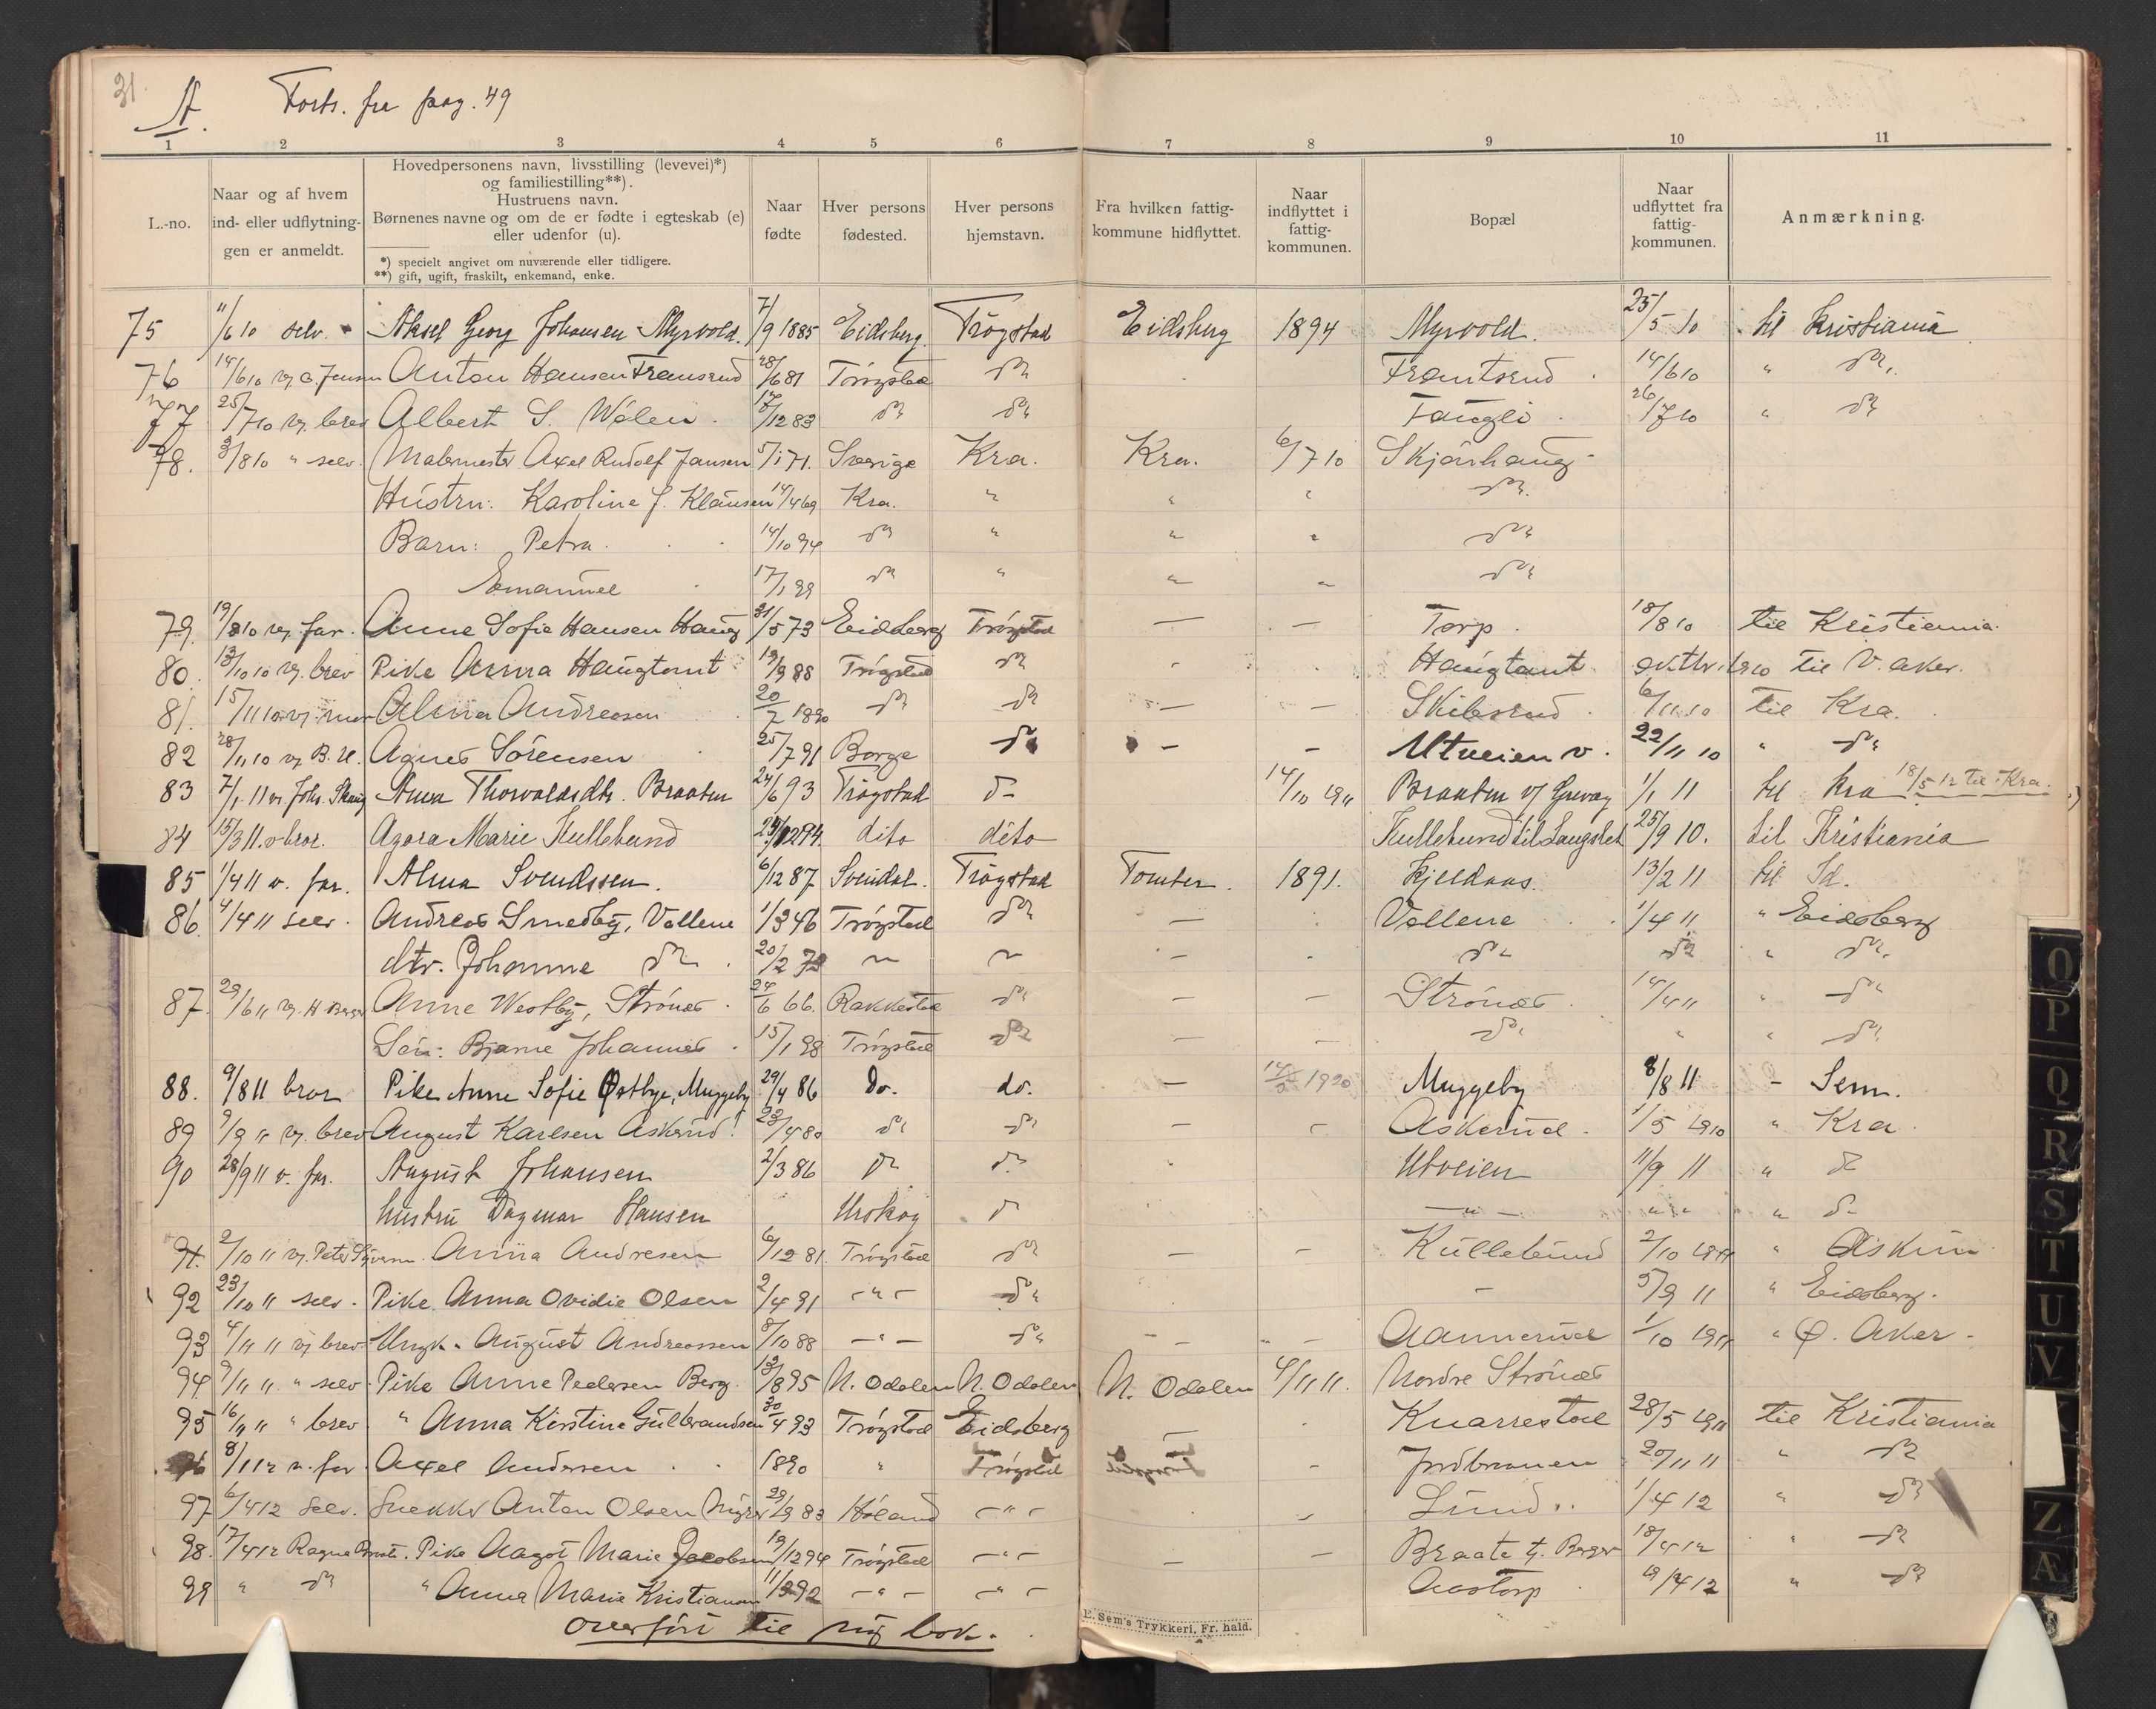 31
A. Forts. fra pag. 49
1 2 3 4 5 6 7 8 9 10 11
L.-no.
Naar og af hvem ind- eller udflytningen er anmeldt.
Hovedpersonens navn, livsstilling (levevei)*)
og familiestilling**).
Hustruens navn.
Børnenes navne og om de er fødte i egteskab (e)
eller udenfor (u).
*) specielt angivet om nuværende eller tidligere.
**) gift, ugift, fraskilt, enkemand, enke.
Naar fødte
Hver persons fødested.
Hver persons hjemstavn.
Fra hvilken fattigkommune hidflyttet.
Naar indflyttet i fattigkommunen.
Bopæl
Naar udflyttet fra fattigkommunen.
Anmærkning.
75 11/6 10 selv. Aksel Georg Johansen Myrvold. 7/9 1885 Eidsberg. Trøgstad Eidsberg 1894 Myrvold. 25/5 10 til Kristiania
76 14/6 10 Anton Hansen 28/6 81 Trøgstad do 14/6 10 " do
77 25/7 10 vj. brev Albert S. Wølen 12/12 83 do do Taugli 26/7 10 " do
78. 3/8 10 " selv. Malermester Axel Rudolf Jansen 5/1 71. Sverige Kra. Kra. 6/7 10 Skjørhaug
Hustru: Karoline J. Klausen 14/4 69 Kra. " " " do
Barn: Petra 14/10 94 do " " " do
Emanuel 17/1 99 do " " " do
79. 19/8 10 vj. far. Anne Sofie Hansen Haug 31/5 73 Eidsberg Trøgstad — — Torp 18/8 10 til Kristiania
80. 13/10 10 vj. brev Pike Anna Haugtomt 19/9 88 Trøgstad do Haugtomt oktbr. 1910 til V. aker.
81. 15/11 10 vj. mor Alma Andresen 20/7 1890 do do — — Skibsrud 6/11 10 til Kra.
82 28/11 10 vj B. U. Agnes Sörensen 25/7 91 Borge do — — Utveien v. 22/11 10 " do
83 7/1 11 v. Johs. Skaug Anna Thorvaldsdtr. Braaten 24/6 93 Trøgstad do 14/10 1911 Braaten v/ Grevag 1/1 11 til Kra 18/5 12 til Kra.
84 15/3 11. v bror. Agara Marie Kullebund dito dito Kullebund til Langslet 25/9 10. til Kristiania
85 1/4 11 v. far. Alma Svendssen. 6/12 87 Svendal. Trøgstad Tomter. 1891. Kjeldaas. 13/2 11 til Id.
86. 4/4 11 selv. Andreas Smedby, Vollene 1/3 46 Trøgstad do — Vollene 1/4 11 " Eidsberg
dtr. Johanne do 20/2 79 " " — do do " do
87. 29/6 11 vj. H Berger Anne Westby, Strönæs 24/6 66. Rakkestad do — — Strönæs 14/4 11 " do
Sön: Bjarne Johannes 15/1 98 Trøgstad do — — do " " do
88. 9/8 11 bror Pike Anne Sofie Østbye, Muggeby 29/4 86 Do. do. — 1920 Muggeby 8/8 11 - Sem.
89 9/9 11 vj. brev August Karlsen Askerud. 23/4 80 do do — — Askerud 1/5 1910 " Kra
90 28/9 11 v. far. August Johansen 2/3 86 do do Utveien 11/9 11 " do
hustru Dagmar Hansen Urskog do — " — " " " do
91. 2/10 11 Anna Andresen 6/12 81. Trøgstad do — — Kullebund 2/10 1911 " Askim
92 23/10 11 selv. Pike Anna Ovidie Olsen 2/4 91 — " — do — 5/9 11 " Eidsberg.
93 4/11 11 vj brev Ungk. August Andreassen 8/10 88 — " — do — — Aannerud 1/10 1911 " Ø. Aker
94 9/11 11 " selv Pike Anne Pedersen Berg 13/8 95 N. Odalen N. Odalen N. Odalen 4/11 11. Nordre Strönæs
95 16/11 11 " brev " Anna Kirstine Gulbrandsen 30/4 93 Trøgstad Eidsberg — Knarrestad 28/5 1911 til Kristiania
96 8/1 12 v. far. Axel Andersen 1890 " Trøgstad Trøgstad — Jordbraaten 20/11 11 " do
97 6/4 12 selv. Snekker Anton Olsen 83 Höland — " — Lund 1/4 12 " do
98. 17/4 12 Pike Aagot Marie Jacobsen 19/12 94 Trøgstad — " — — — Braate 18/4 12 " do
99 " do " Anna Marie Kristiansen — " — — " — Aastorp 19/4 12 " do
overført til ny bok.
E. Sem's Trykkeri, Fr. hald.
O P Q R S T U V Z Æ